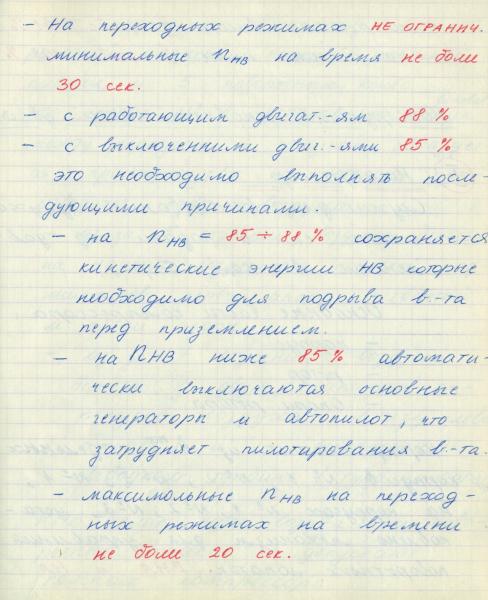 - На переходных режимах НЕ ОГРАНИЧ.
минимальные nнв на время не боли
30 сек.
- с работающим двигат.-ям 88 %
- с выключенними двиг.-ями 85 %
это необходимо выполнять после-
дующими причинами.
- на nнв = 85 ÷ 88 % сохраняется
кинетические энергии НВ которые
необходимо для подрыва в.-та
перед приземлением.
- на nнв ниже 85 % автомати-
чески выключаютая основные
генераторы и автопилот, что
затрудняет пилотирования в.-та.
- максимольные nнв на переход-
ных режимах на времени
не боли 20 сек.